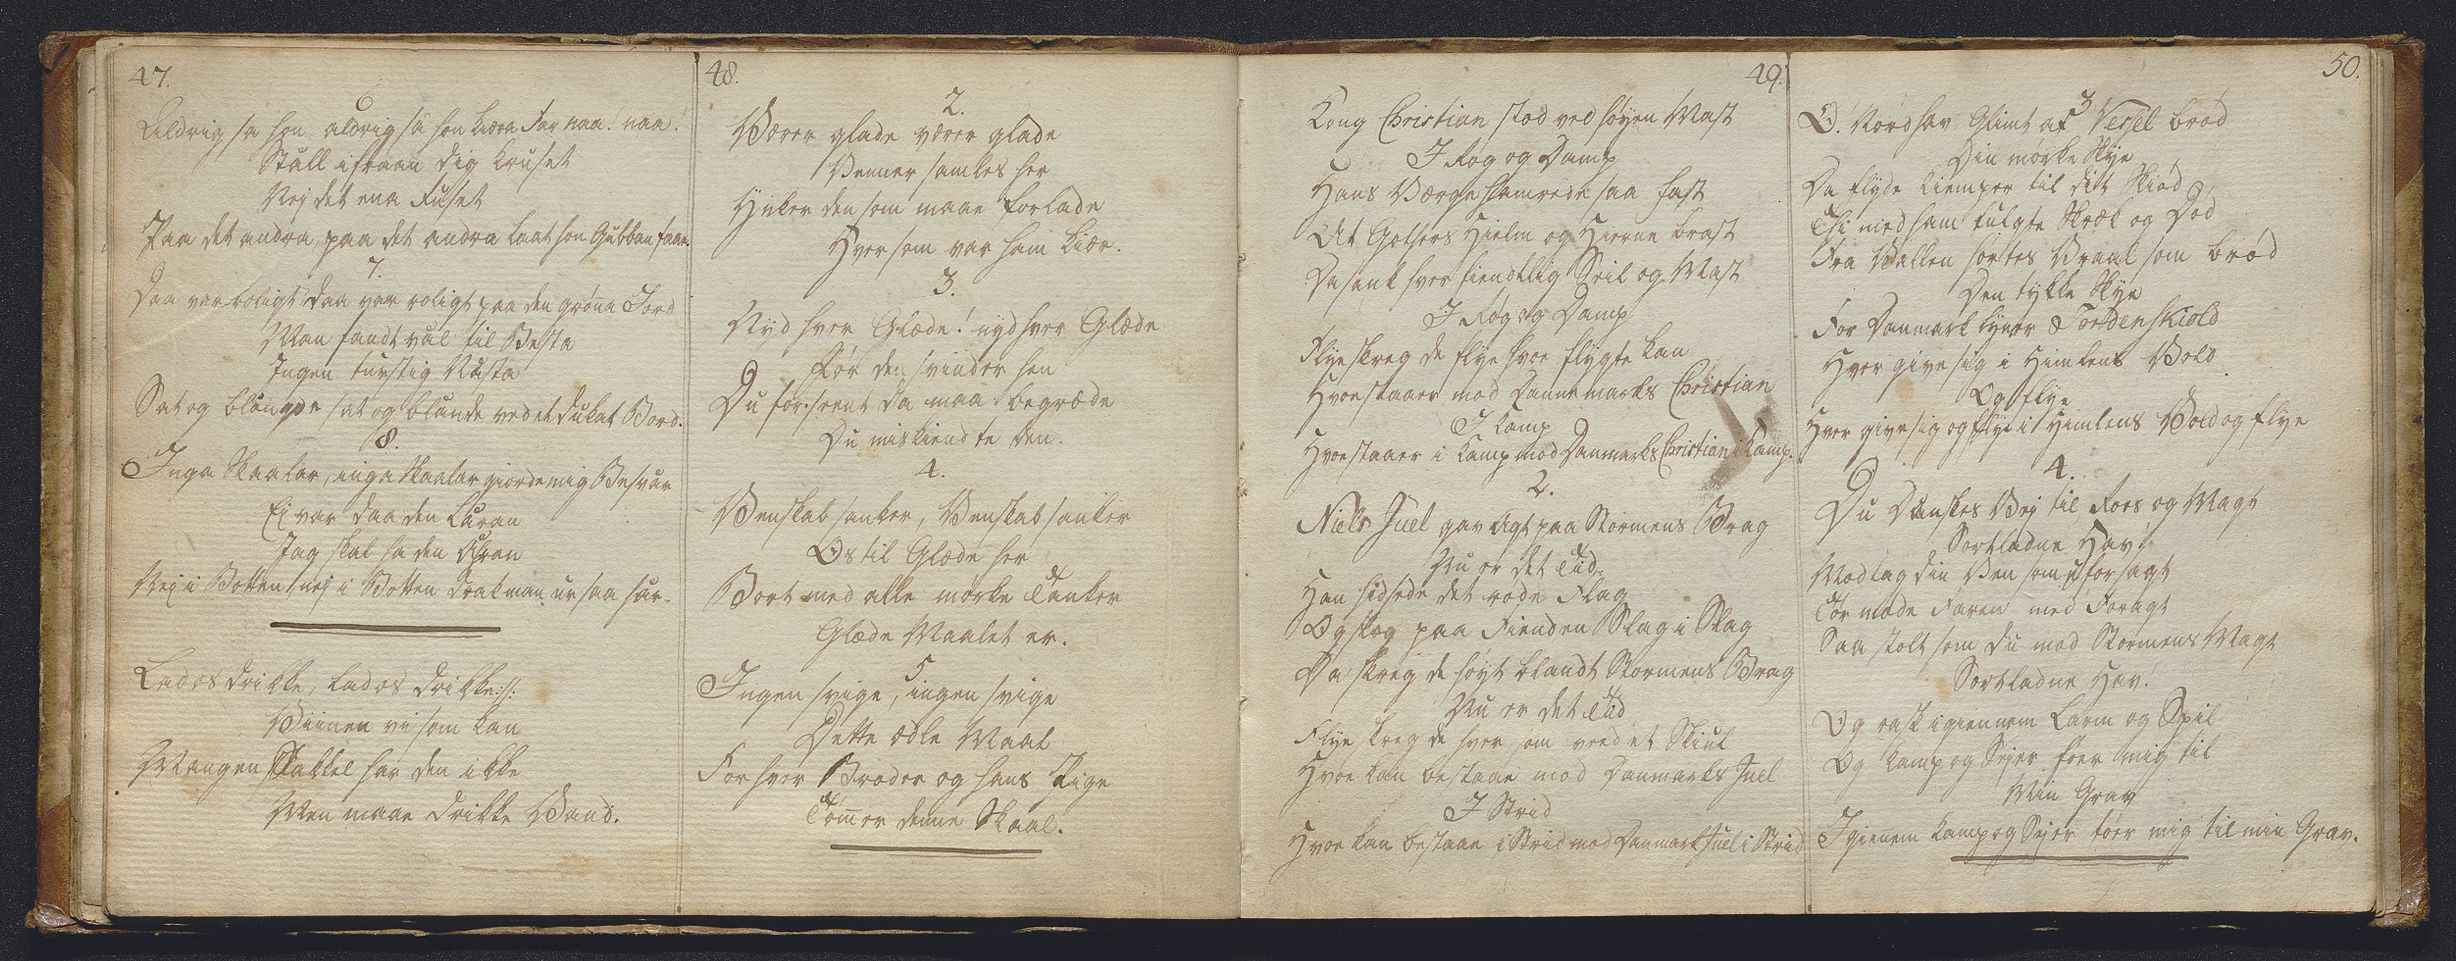 47.
6
Aldrig sa hon aldrig så hon kiæra Far naa! naa!
Stáll ifraan dig Kruset
Nej det ena Ruset
Paa det andra, paa det andra laat hon Gubban faae.
7.
Daa var roligt daa var roligt paa den gröna Jord
Man fandt väl til Besta
Ingen turstig Nästa
Sat og blungde sat og blunde ved et dukat Bord.
8.
Inga Skaalar, inga Skaalar giorde mig Besvär
Ei var daa den Luran
Jag skal ha den Ahran
Nej i Botten, nej i Botten Drak man ur saa här.
Lad os drikke, lad os drikke :/:
Viinen vi som kan
Mangen Stakkel har den ikke
Men maae drikke Vand.
48.
2.
Værer glade værer glade
Venner samles her
Hylker den som maae forlade
Hver som var ham kiær.
3.
Nyd hver Glæde! nyd hver Glæde
Før den svinder hen
Du for seent da maa begræde
Du miskiendte den.
4.
Venskab sanker, Venskab sanker
Os til Glæde her
Bort med alle mørke Tanker
Glæde Maalet er.
5
Ingen svige, ingen svige
Dette ædle Maal
For hver Broder og hans Pige
Tømer denne Skaal.
49.
Kong Christian stod ved høyen Mast
I Røg og Damp
Hans Værge hamrede saa fast
At Gothers Hielm og Hierne brast
Da sank hver fiendtlig Seil og Mast
I Røg og Damp
Flye skreg de flye hver flygte kan
Hvo staaer mod Dannemarks Christian
I Kamp
Hvo staaer i Kamp mod Danmarks Christian i Kamp.
2.
Niels Juel gav Agt paa Stormens Brag
Nu er det Tid.
Han hidsede det røde Flag
Og slog paa Fienden Slag i Slag
Da skreg de høyt blandt Stormens Brag
Nu er det Tid
Flye skreg de hver som veed et Skiul
Hvo kan bestaae mod Danmarks Juel
I Strid
Hvo kan bestaae i Strid mod Danmarks Juel i Strid
50.
3
O. Nordhav Glimt af Vessel brød
Din mørke Skye
Da flyde Kiemper til dit Skiød
Thi med ham fulgte Skræk og Død
Fra Vallen hørtes Vraal som brød
Den tykke Skye
For Danmark lyner Tordenskiold
Hver give sig i Himlens Vold
Og flye
Hver give sig og flye i Himlens Vold og flye
4.
Du Danskes Vej til Roes og Magt
Sortladne Hav!
Modtag din Ven som uforsagt
Tør møde Faren med Foragt
Saa stolt som du mod Stormens Magt
Sortladne Hav!
Og rask igiennem Larm og Spil
Og Kamp og Sejer foer mig til
Min Grav
Igienem Kamp og Sejer foer mig til min Grav.